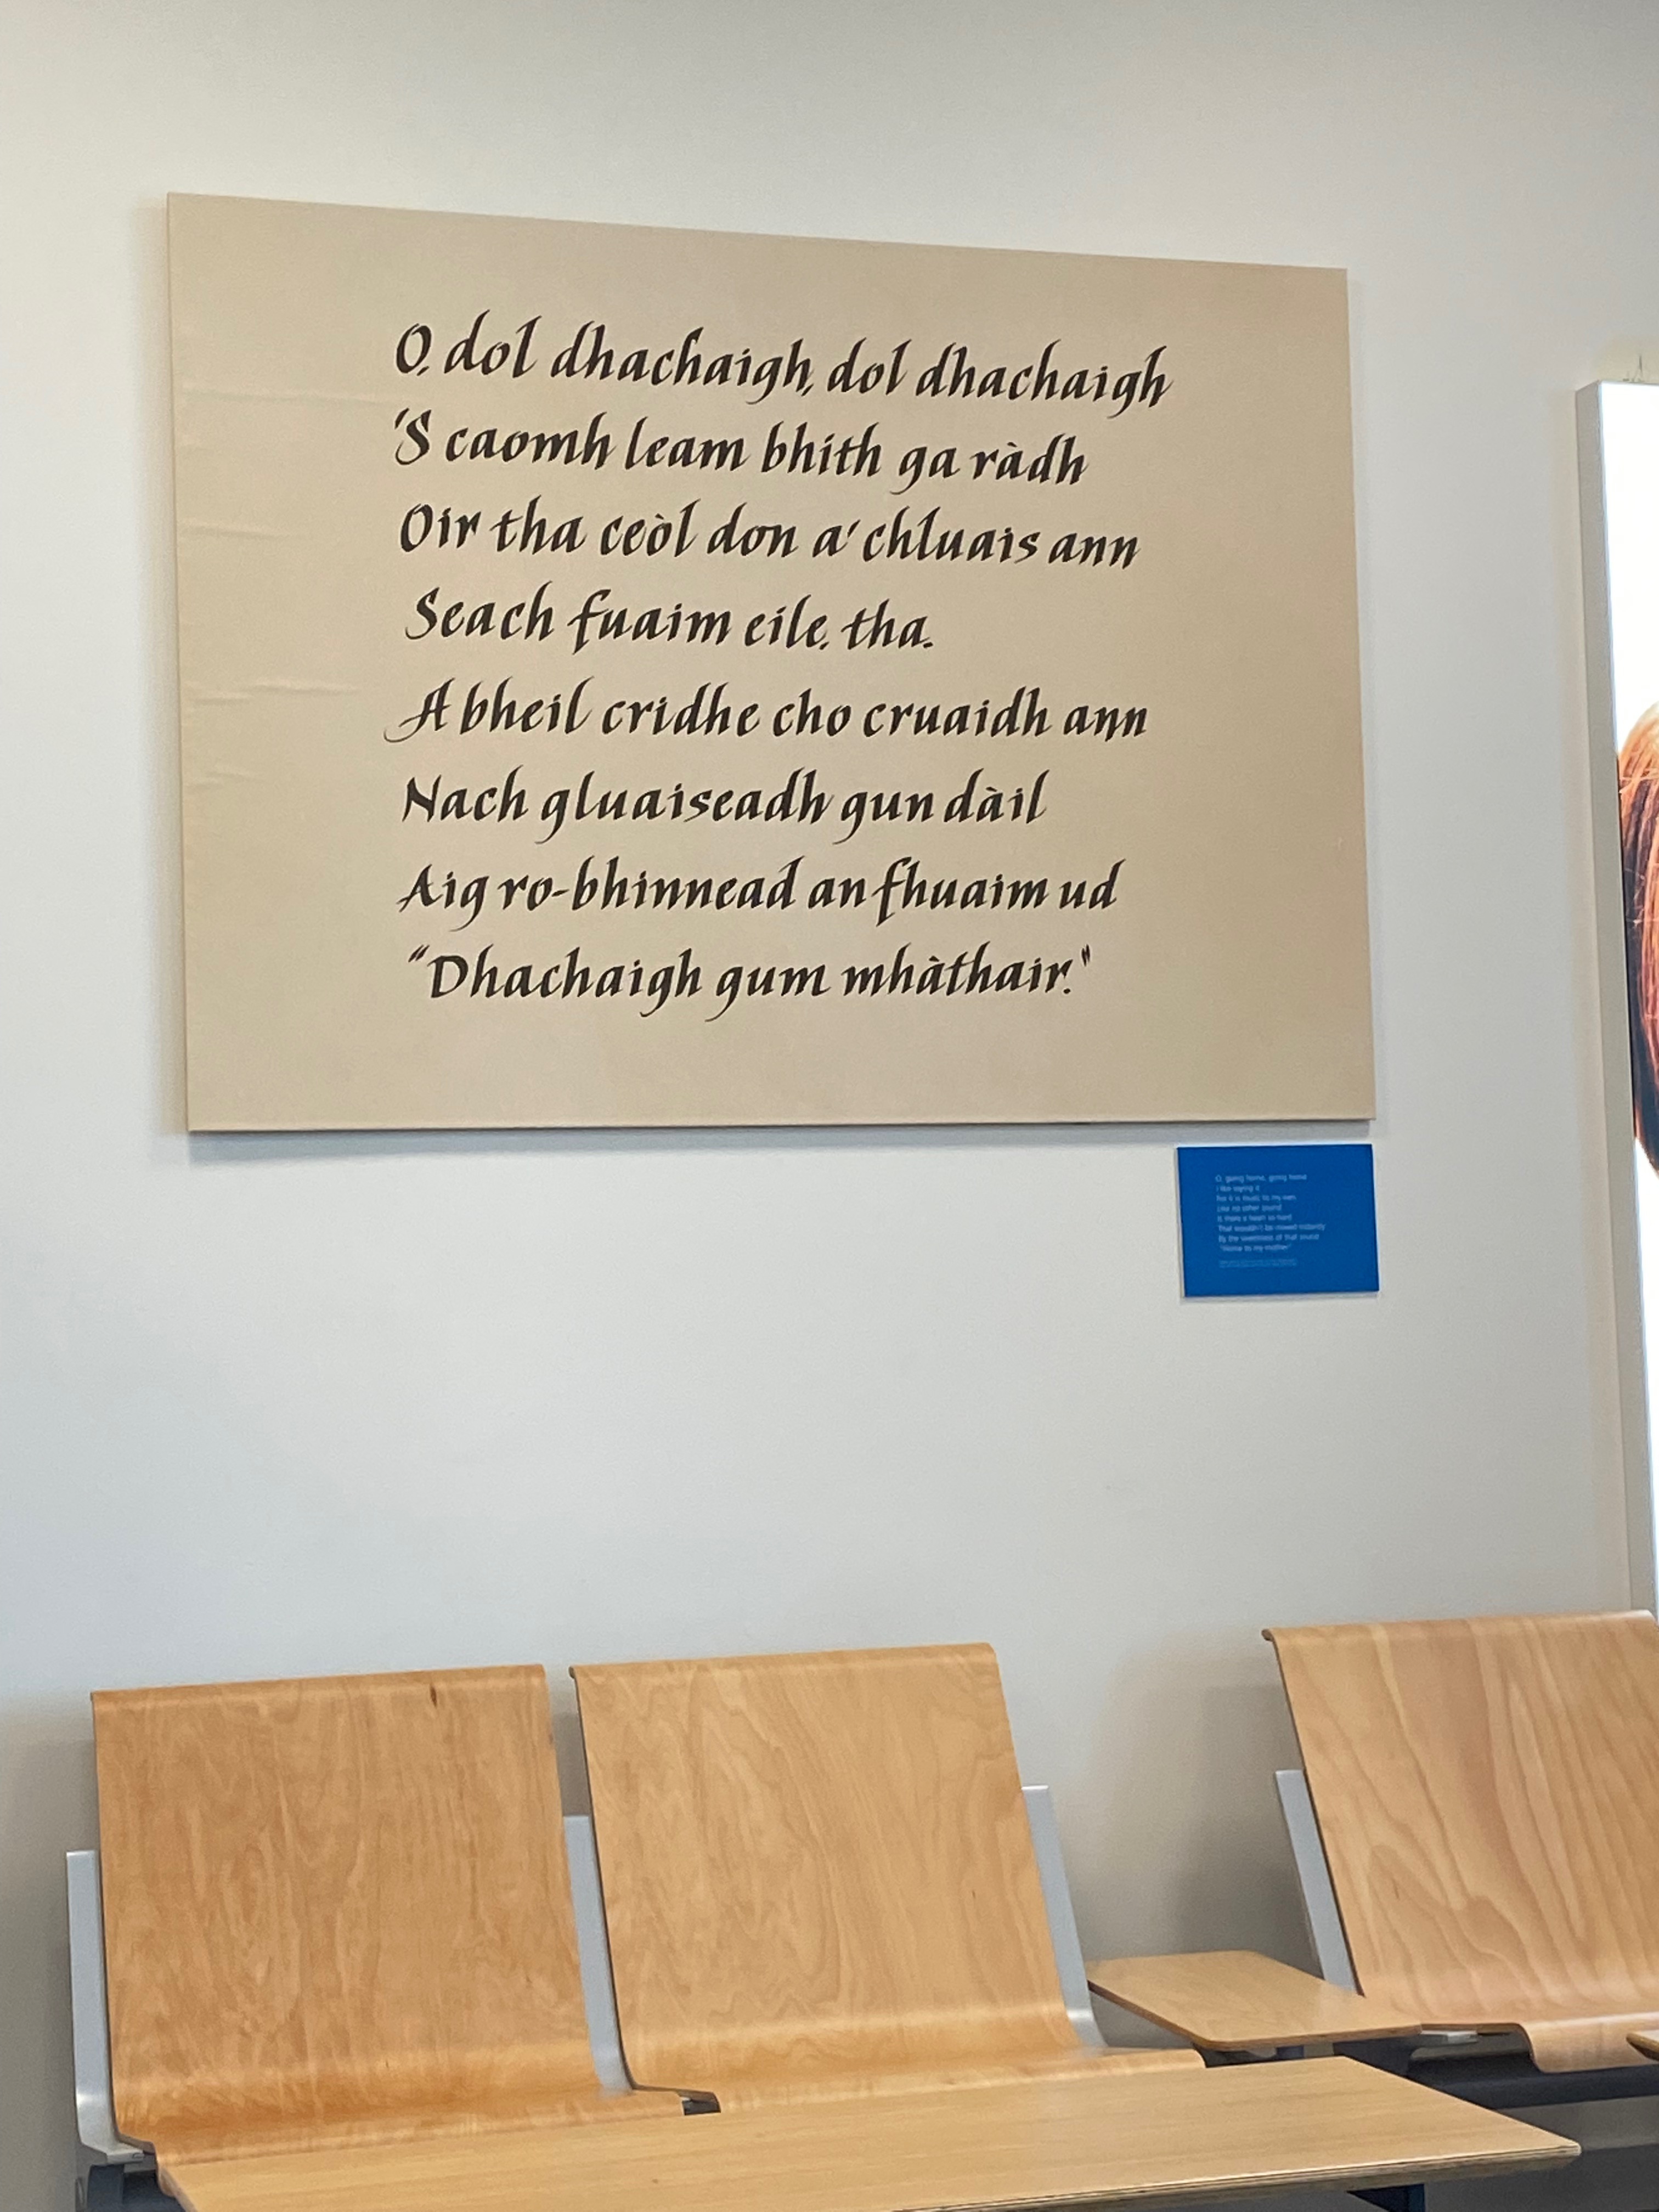 O, dol dhachaigh, dol dhachaigh
'S caomh leam bhith ga ràdh
Oir tha ceòl don a' chluais ann
Seach fuaim eile, tha.
A bheil cridhe cho cruaidh ann
Nach gluaiseadh gun dàil
Aig ro-bhinnead an fhuaim ud
"Dhachaigh gum mhàthair."
O, going home, going home
I like saying it
For it is music to my ears
Like no other sound
Is there a heart so hard
That wouldn't be moved instantly
By the sweetness of that sound
"Home to my mother"